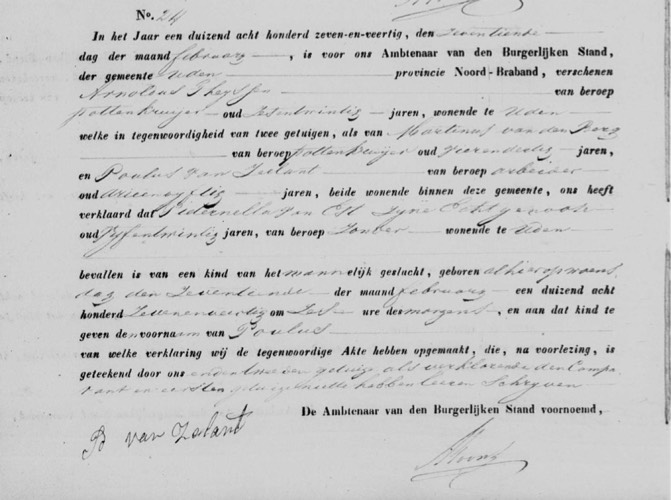 No. 24
In het Jaar een duizend acht honderd zeven-en-veertig, den zeventiende
dag der maand februarij, is voor ons Ambtenaar van den Burgerlijken Stand,
der gemeente Uden provincie Noord-Braband, verschenen
Arnoldus Thijssen van beroep
pottenkruijer oud zesentwintig jaren, wonende te Uden
welke in tegenwoordigheid van twee getuigen, als van Martinus van den Berg
van beroep pottenkruijer oud vierendertig jaren,
en Paulus van Zeelant van beroep arbeider
oud drieenvijftig jaren, beide wonende binnen deze gemeente, ons heeft
verklaard dat Piternella van Es zyne Echtgenoote
oud vyfentwintig jaren, van beroep zonder wonende te Uden
bevallen is van een kind van het mannelijk geslacht, geboren alhier op woens
dag den zeventiende der maand februarij een duizend acht
honderd zevenenveertig om zes ure des morgens, en aan dat kind te
geven den voornaam van Paulus
van welke verklaring wij de tegenwoordige Akte hebben opgemaakt, die, na voorlezing, is
geteekend door ons en den tweeden getuige, als verklarende den Compa
rant en eersten getuige niet te hebben leeren Schryven
De Ambtenaar van den Burgerlijken Stand voornoemd,
P van Zeland